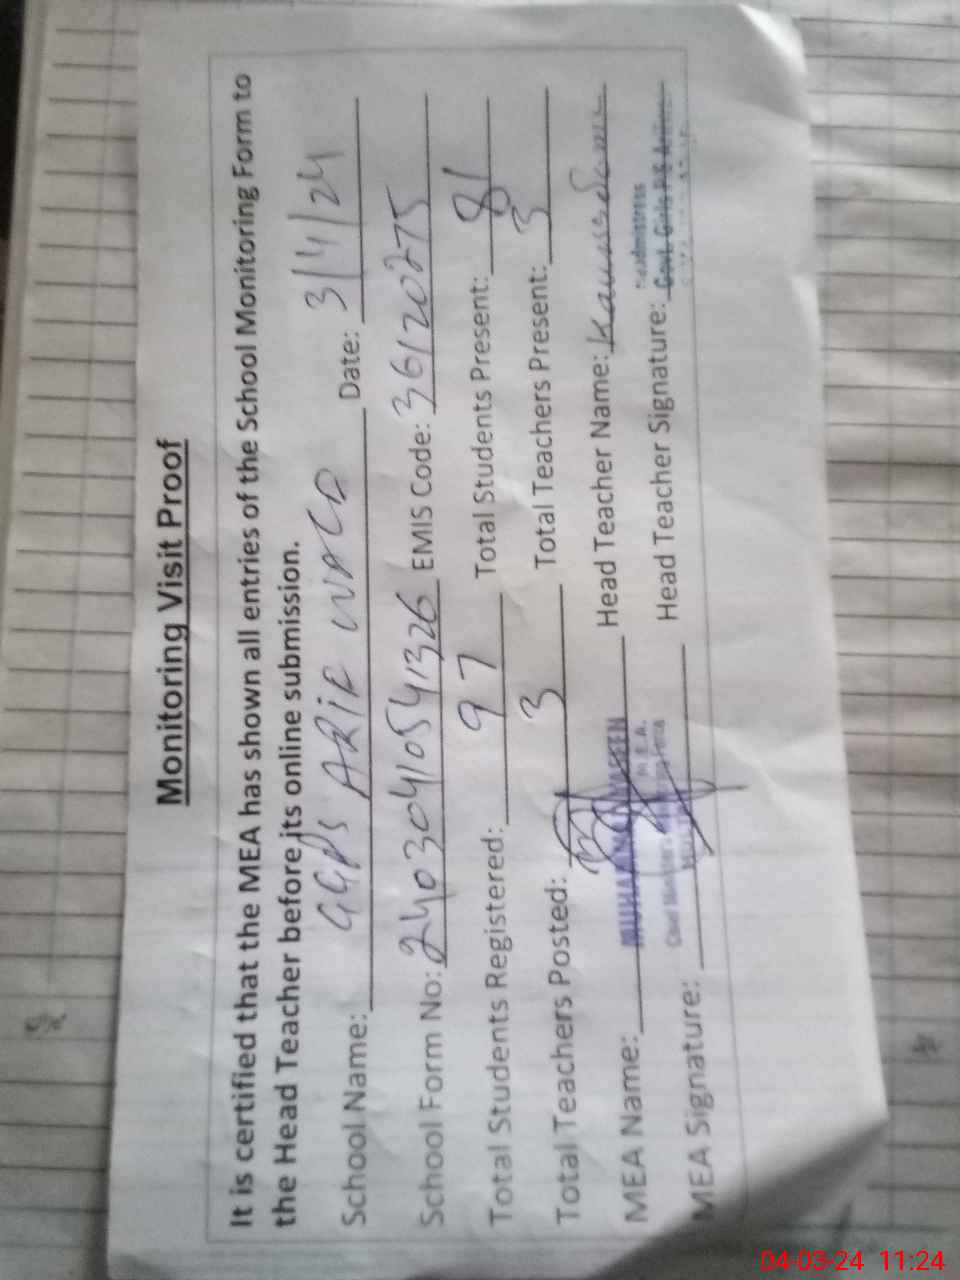 Monitoring Visit Proof
It is certified that the MEA has shown all entries of the School Monitoring Form to
the Head Teacher before its online submission.
School Name: GGPS ARIF WALA Date: 3/4/24
School Form No: 24030410541326 EMIS Code: 36120275
Total Students Registered: 97 Total Students Present: 81
Total Teachers Posted: 3 Total Teachers Present: 3
MEA Name: MUHAMMAD Head Teacher Name: Kausser
M.E.A.
MEA Signature: Head Teacher Signature: Govt. Girls P/S
04-03-24 11:24